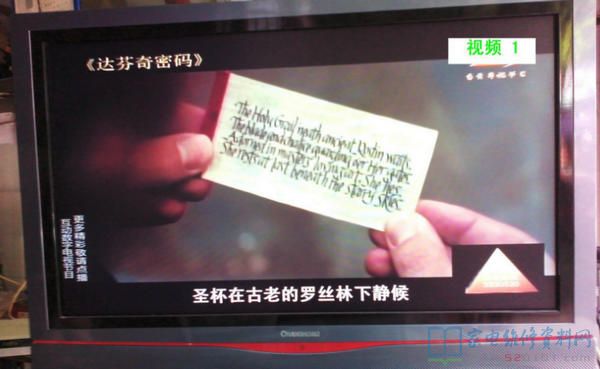 视频 1
《达芬奇密码》
The Holy Grail 'neath ancient Roslin waits.
The blade and chalice guarding o'er Her gates.
Adorned in masters' loving art, She lies.
She rests at last beneath the starry skies.
更多精彩敬请点播
互动数字电视节目
圣杯在古老的罗丝林下静候
家电维修资料网